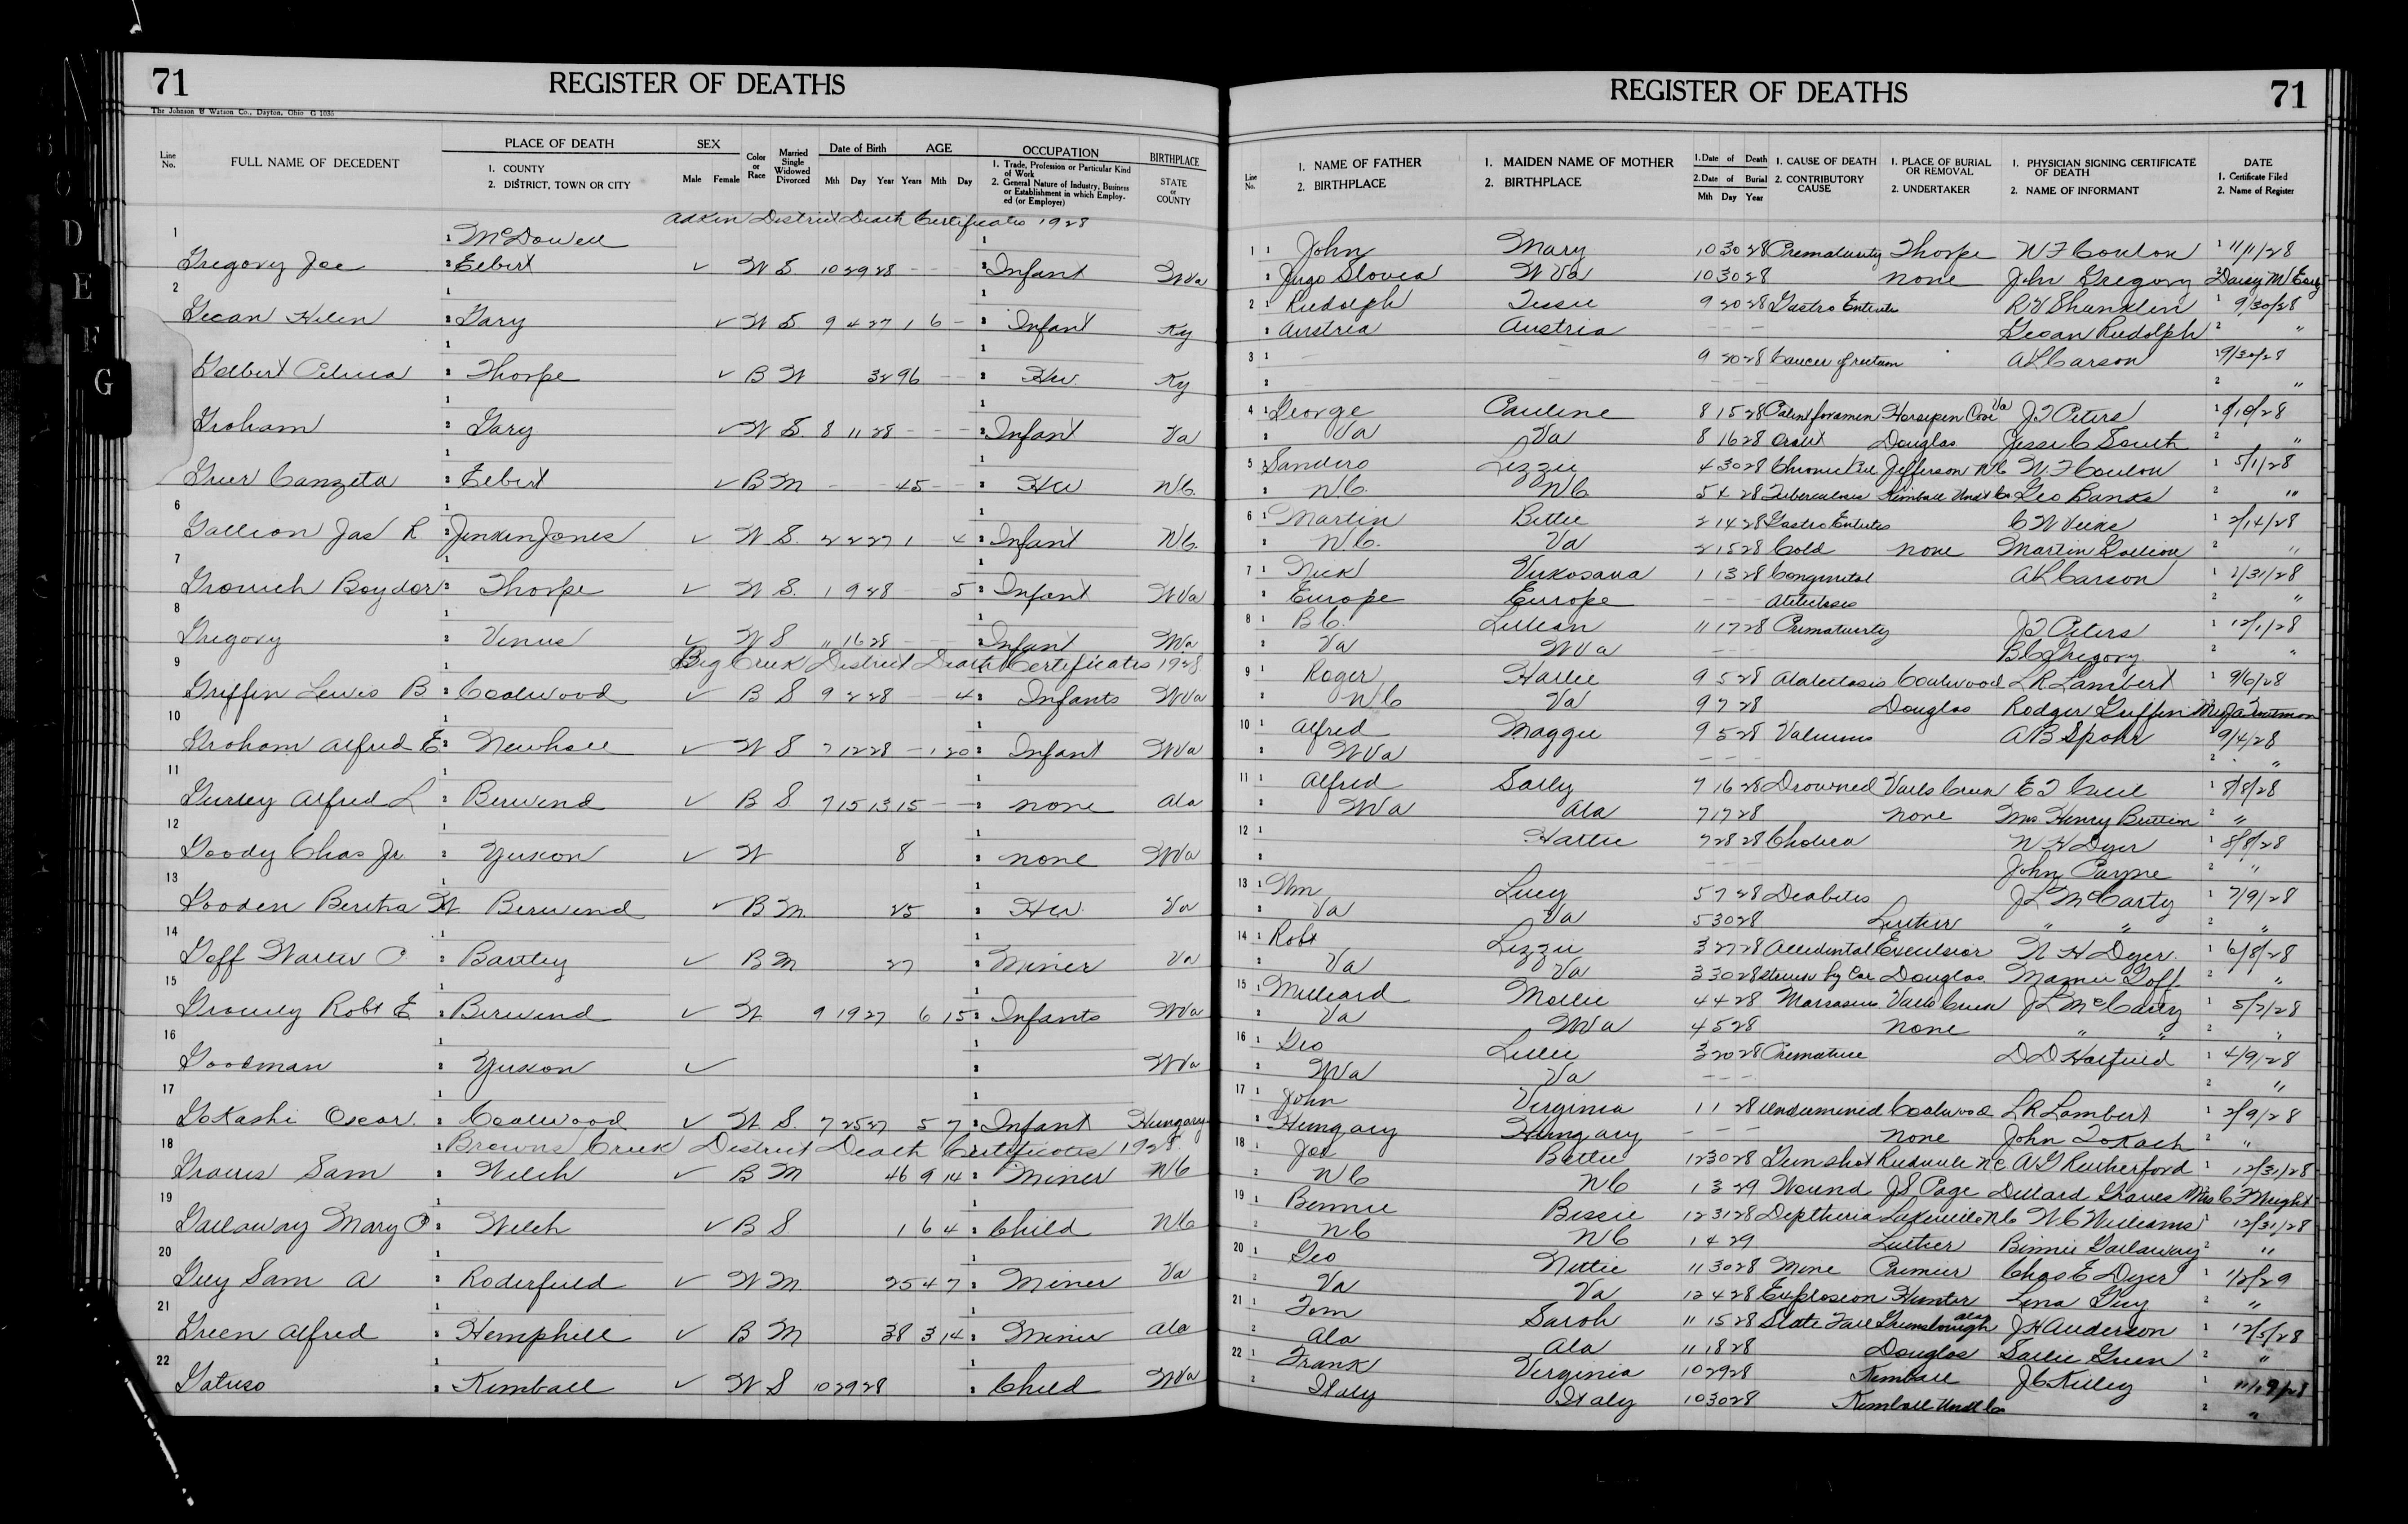 71 REGISTER OF DEATHS
The Johnson & Watson Co., Dayton, Ohio G 1036
Line No. FULL NAME OF DECEDENT PLACE OF DEATH 1. COUNTY 2. DISTRICT, TOWN OR CITY SEX Male Female Color or Race Married Single Widowed Divorced Date of Birth Mth Day Year AGE Years Mth Day OCCUPATION 1. Trade, Profession or Particular Kind of Work 2. General Nature of Industry, Business or Establishment in which Employed (or Employer) BIRTHPLACE STATE or COUNTY
Adkin District Death Certificates 1928
1 McDowell
Gregory Joe Elbert ✓ W S 10 29 28 - - - Infant W Va
2 Gecan Helen Gary ✓ W S 9 4 27 1 6 - Infant Ky
Thorpe ✓ B W 32 96 - - Hw Ky
Graham Gary ✓ W S. 8 11 28 - - - Infant Va
Greer Canzeta Elbert ✓ B M - - 45 - - Hw N C.
6 Gallion Jas R Jenkin Jones ✓ W S. 2 2 27 1 - 4 Infant N C.
7 Thorpe ✓ W S. 1 9 28 - 5 Infant W Va
8 Gregory Venus ✓ W S 11 16 28 - - - Infant W Va
Big Creek District Death Certificates 1928
9 Griffin Lewis B Coalwood ✓ B S 9 2 28 - - 4 Infants W Va
10 Graham Alfred E Newhall ✓ W S 7 12 28 - 1 20 Infant W Va
11 Gurley Alfred L Berwind ✓ B S 7 15 13 15 - - none Ala
12 Goody Chas Jr. Yukon ✓ W 8 none W Va
13 Gooden Bertha W Berwind ✓ B M 25 Hw Va
14 Goff Walter P Bartley ✓ B M 27 Miner Va
15 Robt E Berwind ✓ W 9 19 27 6 15 Infants W Va
16 Goodman Yukon ✓ W Va
17 GoKashi Oscar Coalwood ✓ W S. 7 25 27 5 7 Infant Hungary
Browns Creek District Death Certificates 1928
18 Graves Sam Welch ✓ B M 46 9 14 Miner N C
19 Gallaway Mary P Welch ✓ B S 1 6 4 Child N C
20 Guy Sam A Roderfield ✓ W M 25 4 7 Miner Va
21 Green Alfred Hemphill ✓ B M 38 3 14 Miner Ala
22 Gatuso Kimball ✓ W S 10 29 28 Child W Va
REGISTER OF DEATHS 71
Line No. 1. NAME OF FATHER 2. BIRTHPLACE 1. MAIDEN NAME OF MOTHER 2. BIRTHPLACE 1. Date of Death 2. Date of Burial Mth Day Year 1. CAUSE OF DEATH 2. CONTRIBUTORY CAUSE 1. PLACE OF BURIAL OR REMOVAL 2. UNDERTAKER 1. PHYSICIAN SIGNING CERTIFICATE OF DEATH 2. NAME OF INFORMANT DATE 1. Certificate Filed 2. Name of Register
1 John Mary 10 30 28 Prematurity Thorpe W F Coulon 11/11/28
Jugo Slovia W Va 10 30 28 none John Gregory Daisy M
2 Rudolph Tessie 9 20 28 Gastro Enteritis R V Shanklin 9/30/28
Austria Austria - - - Gecan Rudolph "
3 - - 9 20 28 Cancer of rectum A L Carson 9/30/28
- - - - - "
4 George Pauline 8 15 28 Patent foramen Horsepen Cove Va J T Peters 9/10/28
Va Va 8 16 28 Douglas Jesse C South "
5 Sanders Lizzie 4 30 28 Chronic Jefferson N C W. F Coulon 5/1/28
N C. N C 5 4 28 Tuberculosis Kimball Undt Co Geo Banks "
6 Martin Bettie 2 14 28 Gastro Enteritis 2/14/28
N C. Va 2 15 28 Cold none Martin Gallion "
7 Nick Vukosava 1 13 28 Congenital A L Carson 1/31/28
Europe Europe - - - Atilectosis "
8 B C. Lillian 11 17 28 Prematurity J T Peters 12/1/28
Va W Va - - - B C Gregory "
9 Roger Hallie 9 5 28 Atalectasis Coalwood L R Lambert 9/6/28
N C Va 9 7 28 Douglas Rodger Griffin
10 Alfred Maggie 9 5 28 A B Spohr 9/4/28
W Va - - - "
11 Alfred Sally 7 16 28 Drowned Varls Creek E T Cecil 8/8/28
W Va Ala 7 17 28 none Mrs Henry "
12 Hattie 7 28 28 Cholera W H Dyer 8/8/28
- - - John Payne "
13 Wm Lucy 5 7 28 Deabites J L McCarty 7/9/28
Va Va 5 30 28 Luther " " "
14 Robt Lizzie 3 27 28 Accidental Excelsior W H Dyer. 6/8/28
Va Va 3 30 28 struck by Car Douglas Mamie Goff. "
15 Millard Mollie 4 4 28 Marrasmus Varls Creek J L McCarty 5/2/28
Va W Va 4 5 28 none " " "
16 Geo Lillie 3 20 28 Premature D D Hatfield 4/9/28
W Va Va - - - "
17 John Virginia 1 1 28 undermined Coalwood L R Lambert 2/9/28
Hungary Hungary - - - none John ToKach "
18 Joe Bettie 12 30 28 Gun shot Reidsville N C A G Rutherford 12/31/28
N C N C 1 3 29 Wound J S Page Dillard Graves Mrs C F Wright
19 Bennie Bessie 12 31 28 Deptheria N C W C Williams 12/31/28
N C N C 1 4 29 Luther Binnie Gallaway "
20 Geo Nettie 11 30 28 Mine Premier Chas E Dyer 1/2/29
Va Va 12 4 28 Explosion Hunter Lena Guy "
21 Tom Sarah 11 15 28 Slate Fall Greensborough Ala J H Anderson 12/5/28
Ala Ala 11 18 28 Douglas Sallie Green "
22 Frank Virginia 10 29 28 Kimball J C Killey 11/19/28
Italy Italy 10 30 28 Kimball Undt Co "
D
E
F
G